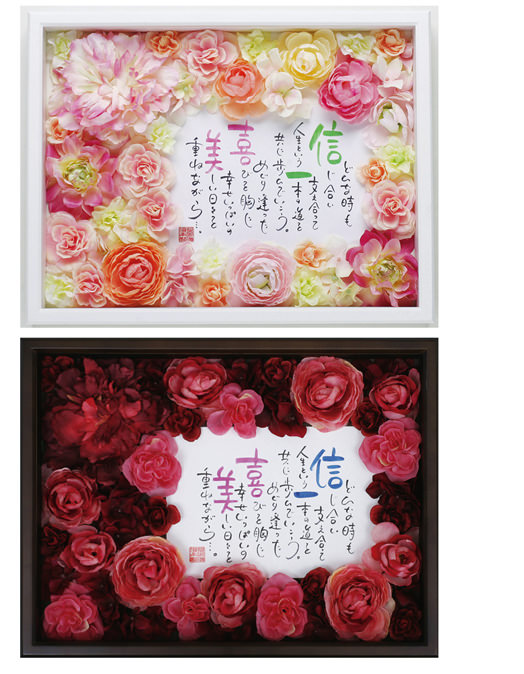 どんな時も
信じ合い
支え合って
人生という
一本の道を
共に歩んでいこう。
めぐり逢った
喜びを胸に
幸せいっぱいの
美しい日々を
重ねながら…。
どんな時も
信じ合い
支え合って
人生という
一本の道を
共に歩んでいこう。
めぐり逢った
喜びを胸に
幸せいっぱいの
美しい日々を
重ねながら…。